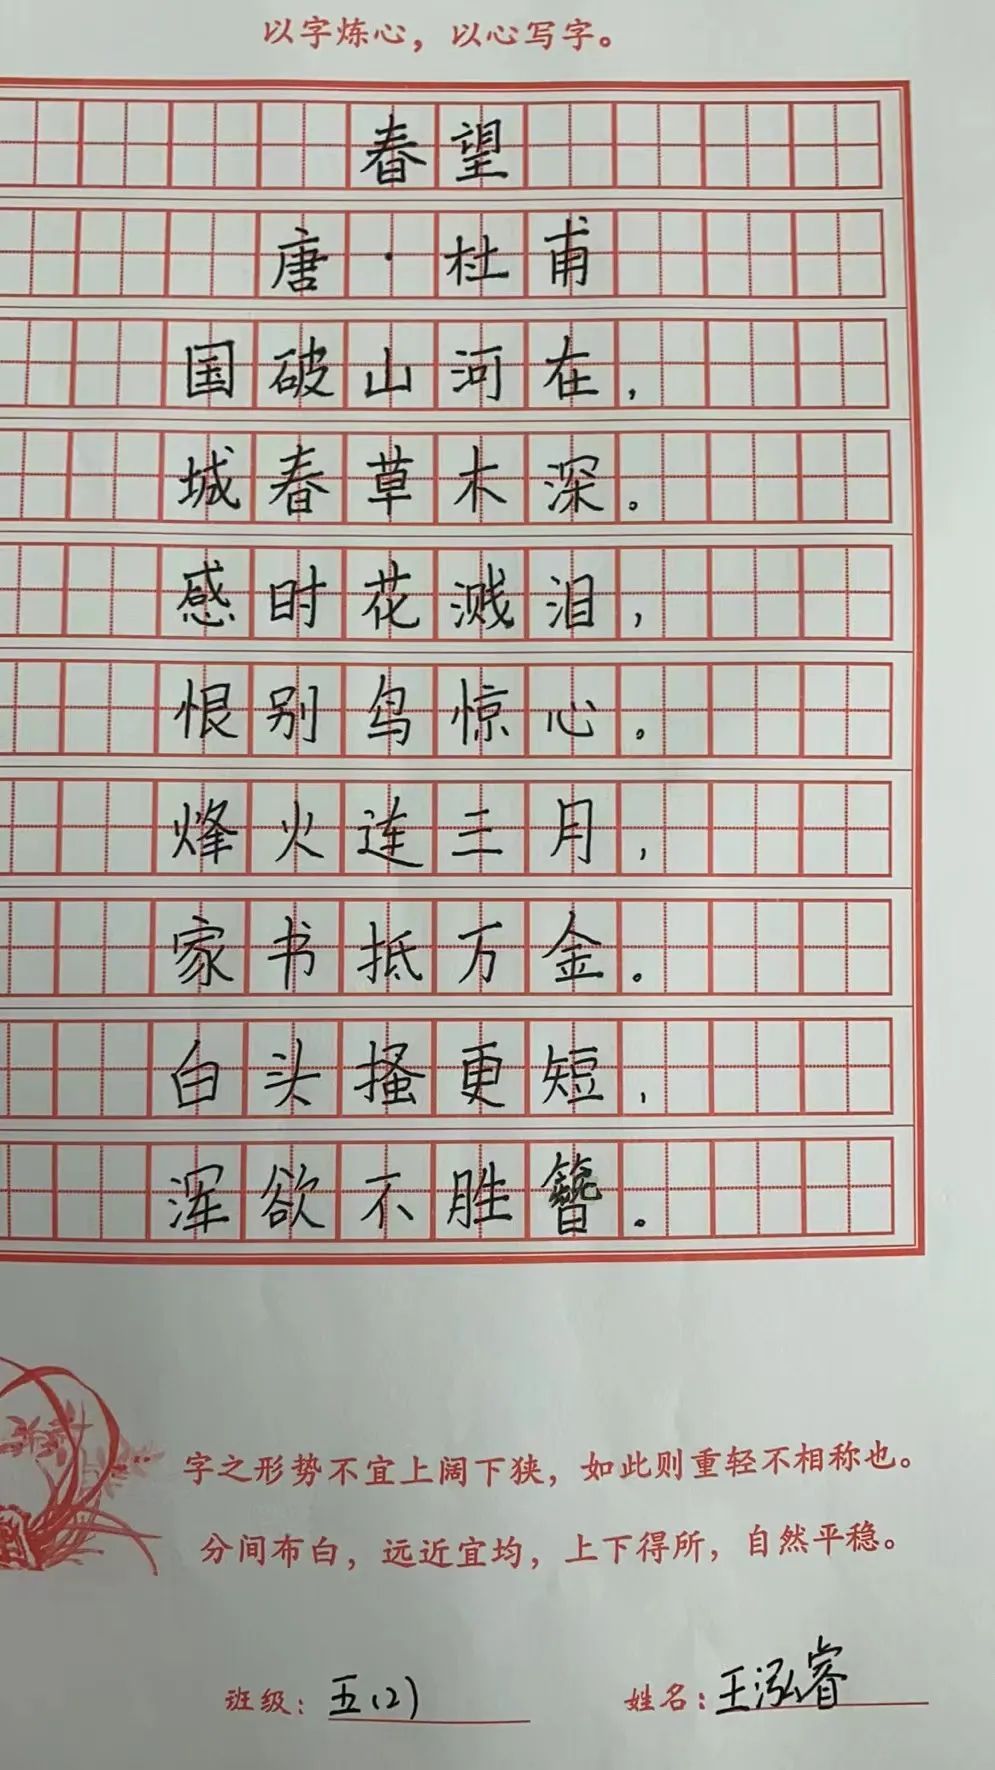 以字炼心，以心写字。
春望
唐·杜甫
国破山河在，
城春草木深。
感时花溅泪，
恨别鸟惊心。
烽火连三月，
家书抵万金。
白头搔更短，
浑欲不胜簪。
字之形势不宜上阔下狭，如此则重轻不相称也。
分间布白，远近宜均，上下得所，自然平稳。
班级：五(2) 姓名：王泓睿